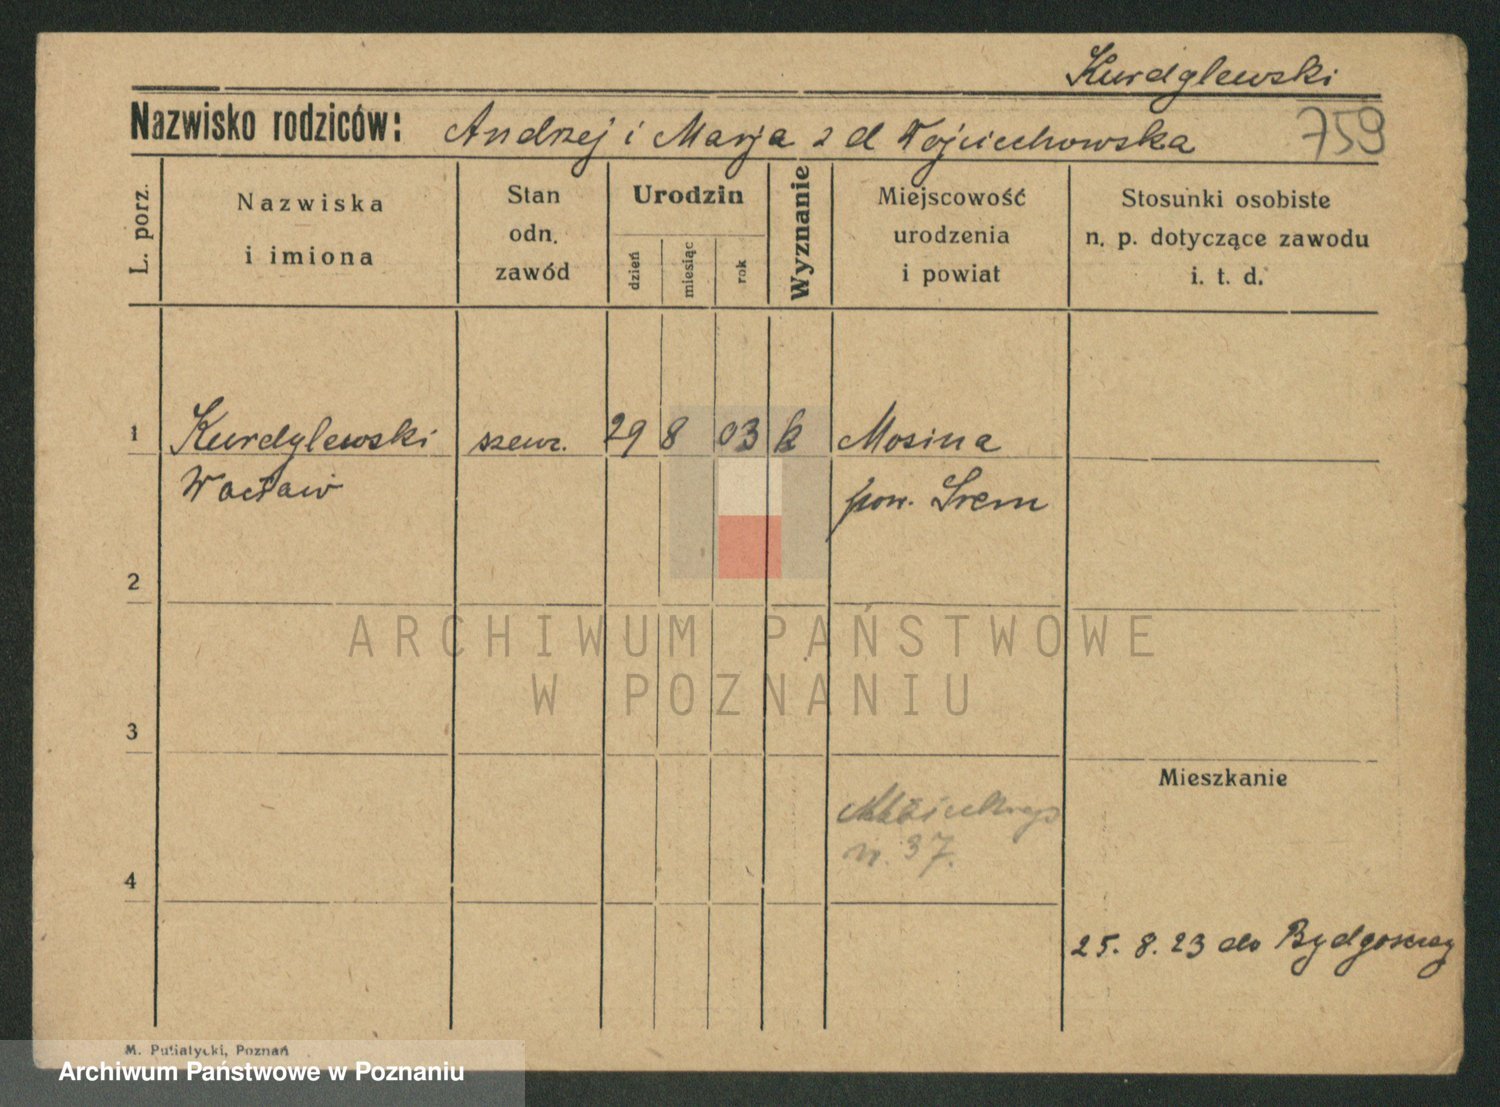 Kurdylewski
Nazwisko rodziców: Andrzej i Marja z d Wojciechowska
759
L. porz.
Nazwiska
i imiona
Stan
odn.
zawód
Urodzin
dzień
miesiąc
rok
Wyznanie
Miejscowość
urodzenia
i powiat
Stosunki osobiste
n. p. dotyczące zawodu
i. t. d.
1 Kurdylewski szewc. 29 8 03 k Mosina
Wacław pow. Śrem
2
ARCHIWUM PAŃSTWOWE
W POZNANIU
3
Mieszkanie
n. 37.
4
25. 8. 23 do Bydgoszczy
M. Putiatycki, Poznań
Archiwum Państwowe w Poznaniu